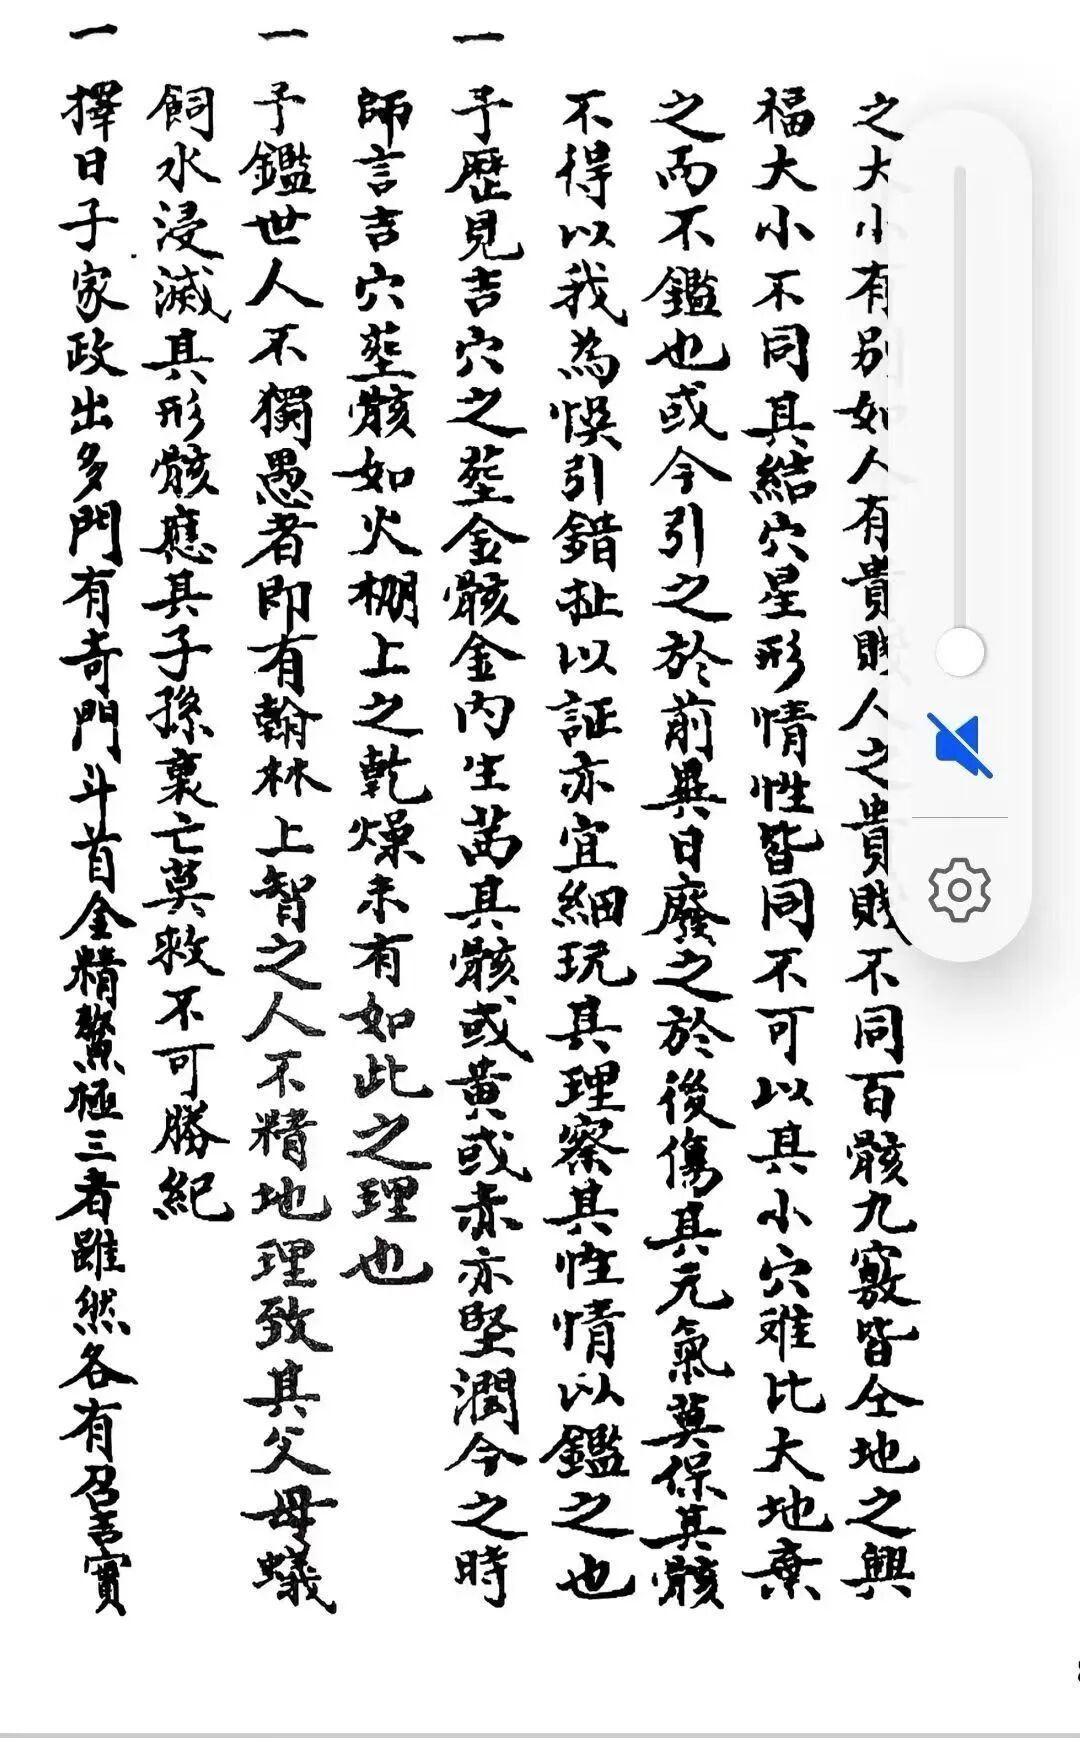 之大小有別如人有貴賤人之貴賤不同百骸九竅皆仝地之興
福大小不同其結穴星形情性皆同不可以其小穴难比大地棄
之而不鑑也或今引之於前異日廢之於後傷其元氣莫保其骸
不得以我為悮引錯扯以証亦宜細玩其理察其性情以鑑之也
一予歷見吉穴之塟金骸金內生茜其骸或黃或赤亦堅潤今之時
師言吉穴塟骸如火棚上之乾燥未有如此之理也
一予鑑世人不獨愚者即有翰林上智之人不精地理致其父母蟻
飼水浸滅其形骸應其子孫衰亡莫救不可勝紀
一擇日子家政出多門有奇門斗首金精鰲極三者雖然各有召吉實